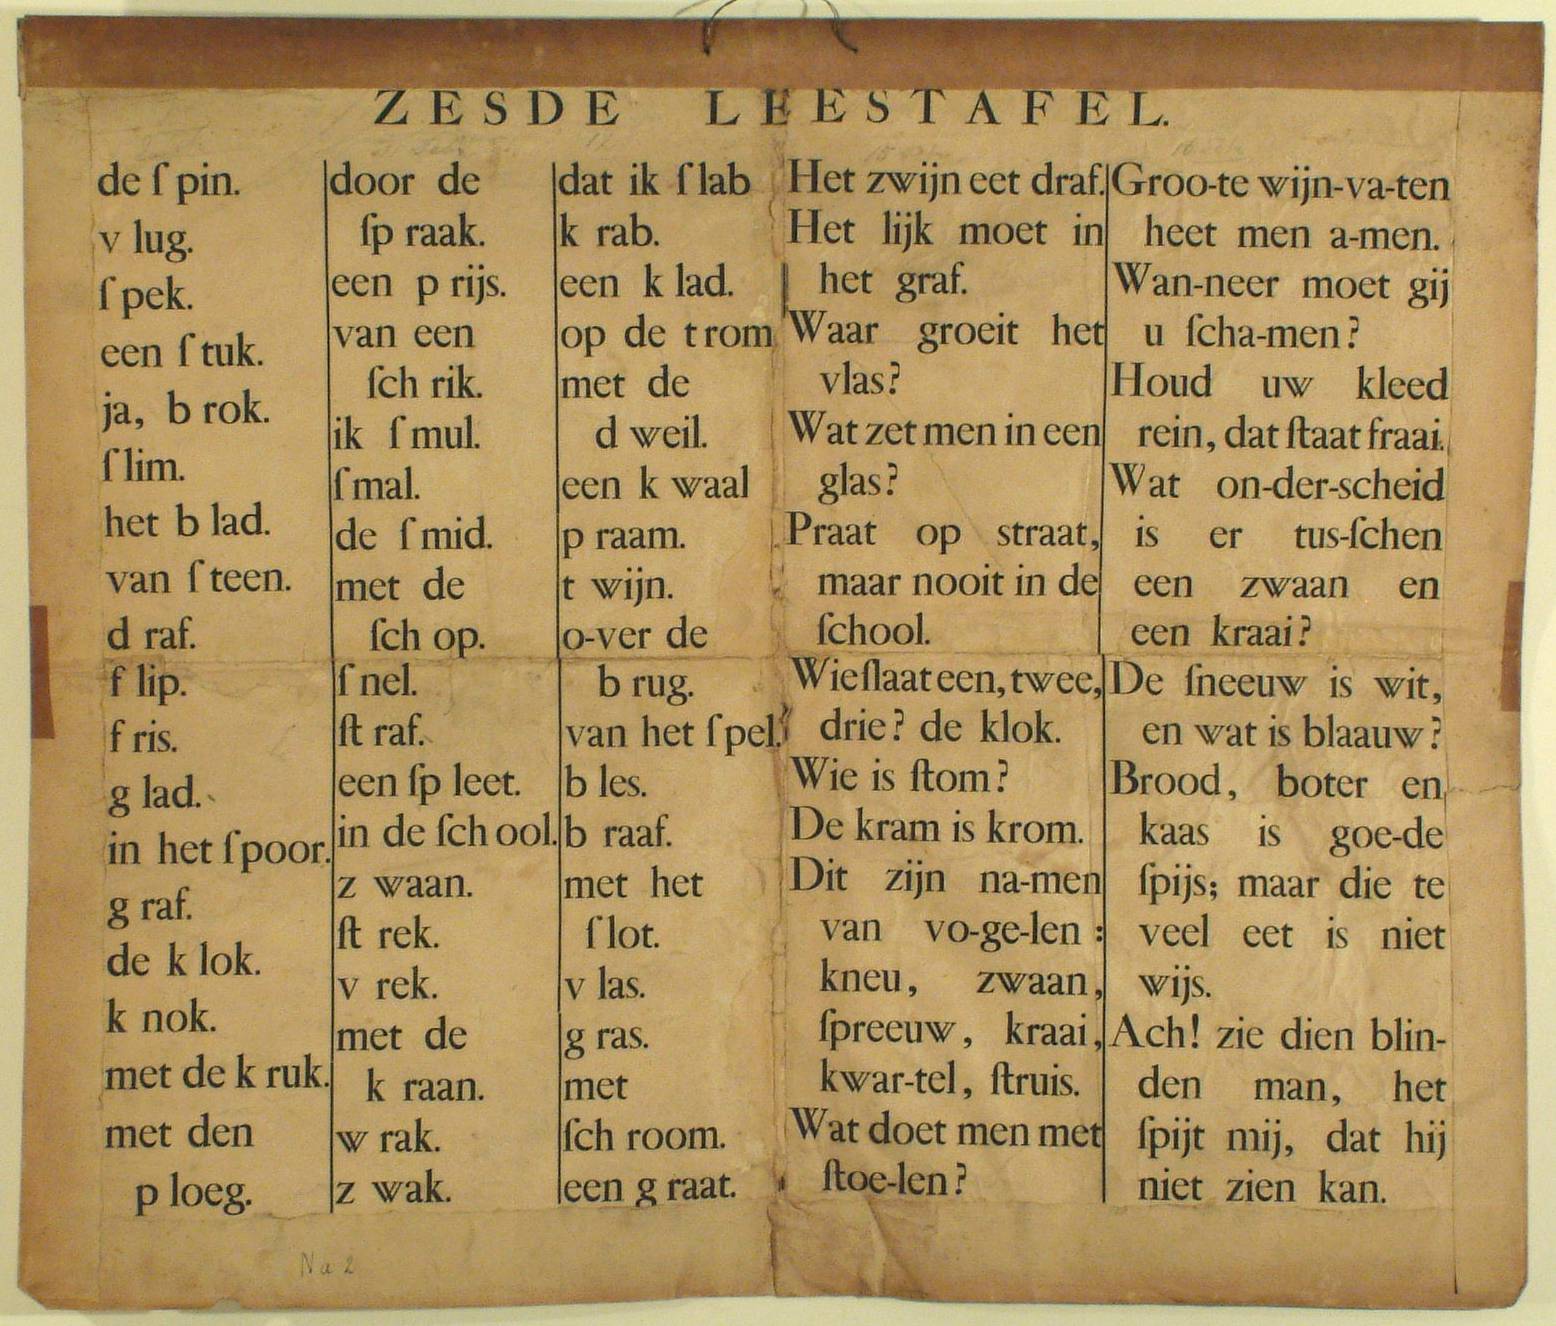 ZESDE LEESTAFEL.
de ſ pin.
v lug.
ſ pek.
een ſ tuk.
ja, b rok.
ſ lim.
het b lad.
van ſ teen.
d raf.
f lip.
f ris.
g lad.
in het ſ poor.
g raf.
de k lok.
k nok.
met de k ruk.
met den
p loeg.
door de
ſp raak.
een p rijs.
van een
ſch rik.
ik ſ mul.
ſ mal.
de ſ mid.
met de
ſch op.
ſ nel.
ſt raf.
een ſp leet.
in de ſch ool.
z waan.
ſt rek.
v rek.
met de
k raan.
w rak.
z wak.
dat ik ſ lab
k rab.
een k lad.
op de t rom
met de
d weil.
een k waal
p raam.
t wijn.
o-ver de
b rug.
van het ſ pel.
b les.
b raaf.
met het
ſ lot.
v las.
g ras.
met
ſch room.
een g raat.
Het zwijn eet draf.
Het lijk moet in
het graf.
Waar groeit het
vlas?
Wat zet men in een
glas?
Praat op straat,
maar nooit in de
ſchool.
Wie ſlaat een, twee,
drie? de klok.
Wie is ſtom?
De kram is krom.
Dit zijn na-men
van vo-ge-len:
kneu, zwaan,
ſpreeuw, kraai,
kwar-tel, ſtruis.
Wat doet men met
ſtoe-len?
Groo-te wijn-va-ten
heet men a-men.
Wan-neer moet gij
u ſcha-men?
Houd uw kleed
rein, dat ſtaat fraai.
Wat on-der-scheid
is er tus-ſchen
een zwaan en
een kraai?
De ſneeuw is wit,
en wat is blaauw?
Brood, boter en
kaas is goe-de
ſpijs; maar die te
veel eet is niet
wijs.
Ach! zie dien blin-
den man, het
ſpijt mij, dat hij
niet zien kan.
Na 2